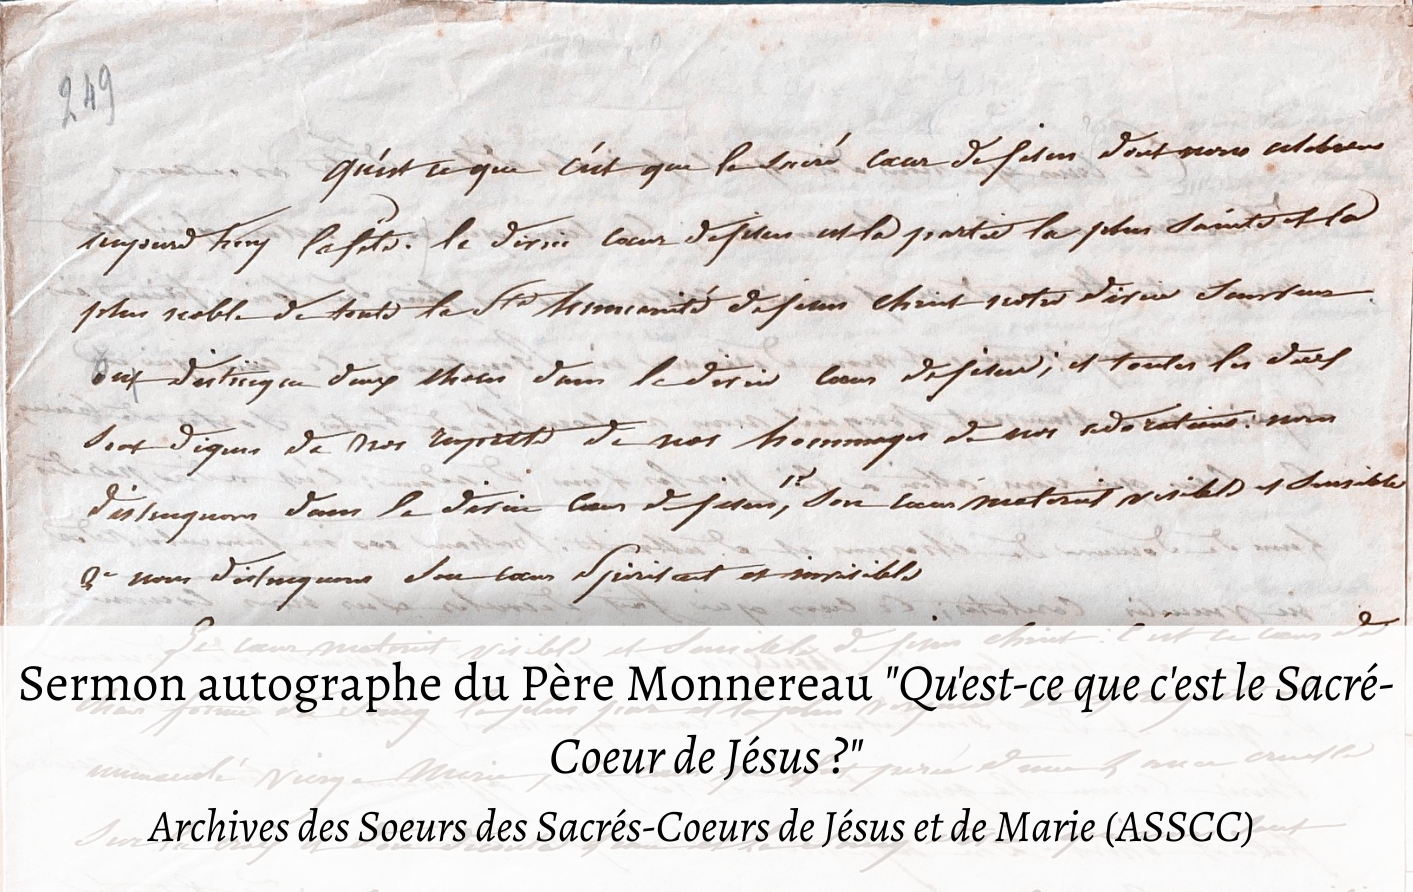 249
qu'est ce que c'est que le sacré coeur de jesus dont nous celebrons
aujourd huy la fête. le divin coeur de jesus est la partie la plus sainte et la
plus noble de toute la Ste humanité de jesus christ notre divin Sauveur
on distingue deux choses dans le divin coeur de jesus; et toutes les deux
sont dignes de nos respects de nos hommages de nos adorations. nous
distinguons dans le divin coeur de jesus, 1° son coeur materiel visible et sensible
2° nous distinguons son coeur spirituel et invisible
Le coeur materiel visible et sensible de jesus christ. c'est ce coeur de
Sermon autographe du Père Monnereau "Qu'est-ce que c'est le Sacré-
Coeur de Jésus ?"
immaculé vierge Marie
Archives des Soeurs des Sacrés-Coeurs de Jésus et de Marie (ASSCC)